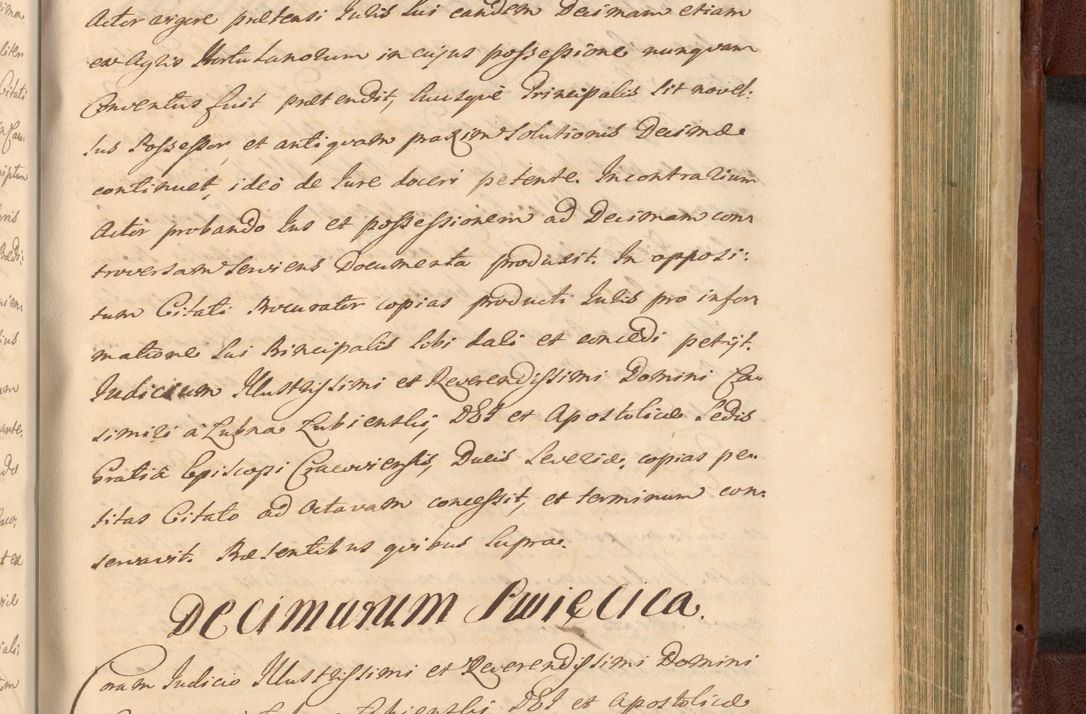 Actor urgere prætensi Iuris sui eandem Decimam etiam
ex Agris Hortulanorum in cujus possessione nunquam
Conventus fuit prætendit, Suusque Principalis sit novel:
lus Possessor, et antiquam praxim Solutionis Decimæ
continuet, ideo de Iure doceri petente. In contrarium
Actor probando Ius et possessionem ad Decimam con
troversam Serviens Documenta produxit. In opposi:
tum Citati Procurator copias producti Iuris pro infor
matione sui Principalis sibi dari et concedi petijt.
Iudicium Illustrissimi et Reverendissimi Domini Ca
simiri à Lubna Lubienski, DEI et Apostolicæ Sedis
Gratia Episcopi Cracoviensis, Ducis Severiæ, copias pe
titas Citato ad octavam concessit, et terminum con
servavit. Præsentibus quibus supra.
Decimarum Swięcica.
Coram Iudicio Illustrissimi et Reverendissimi Domini
Lubienski DEI et Apostolicæ